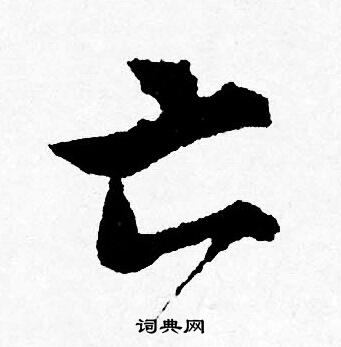 亡
词典网